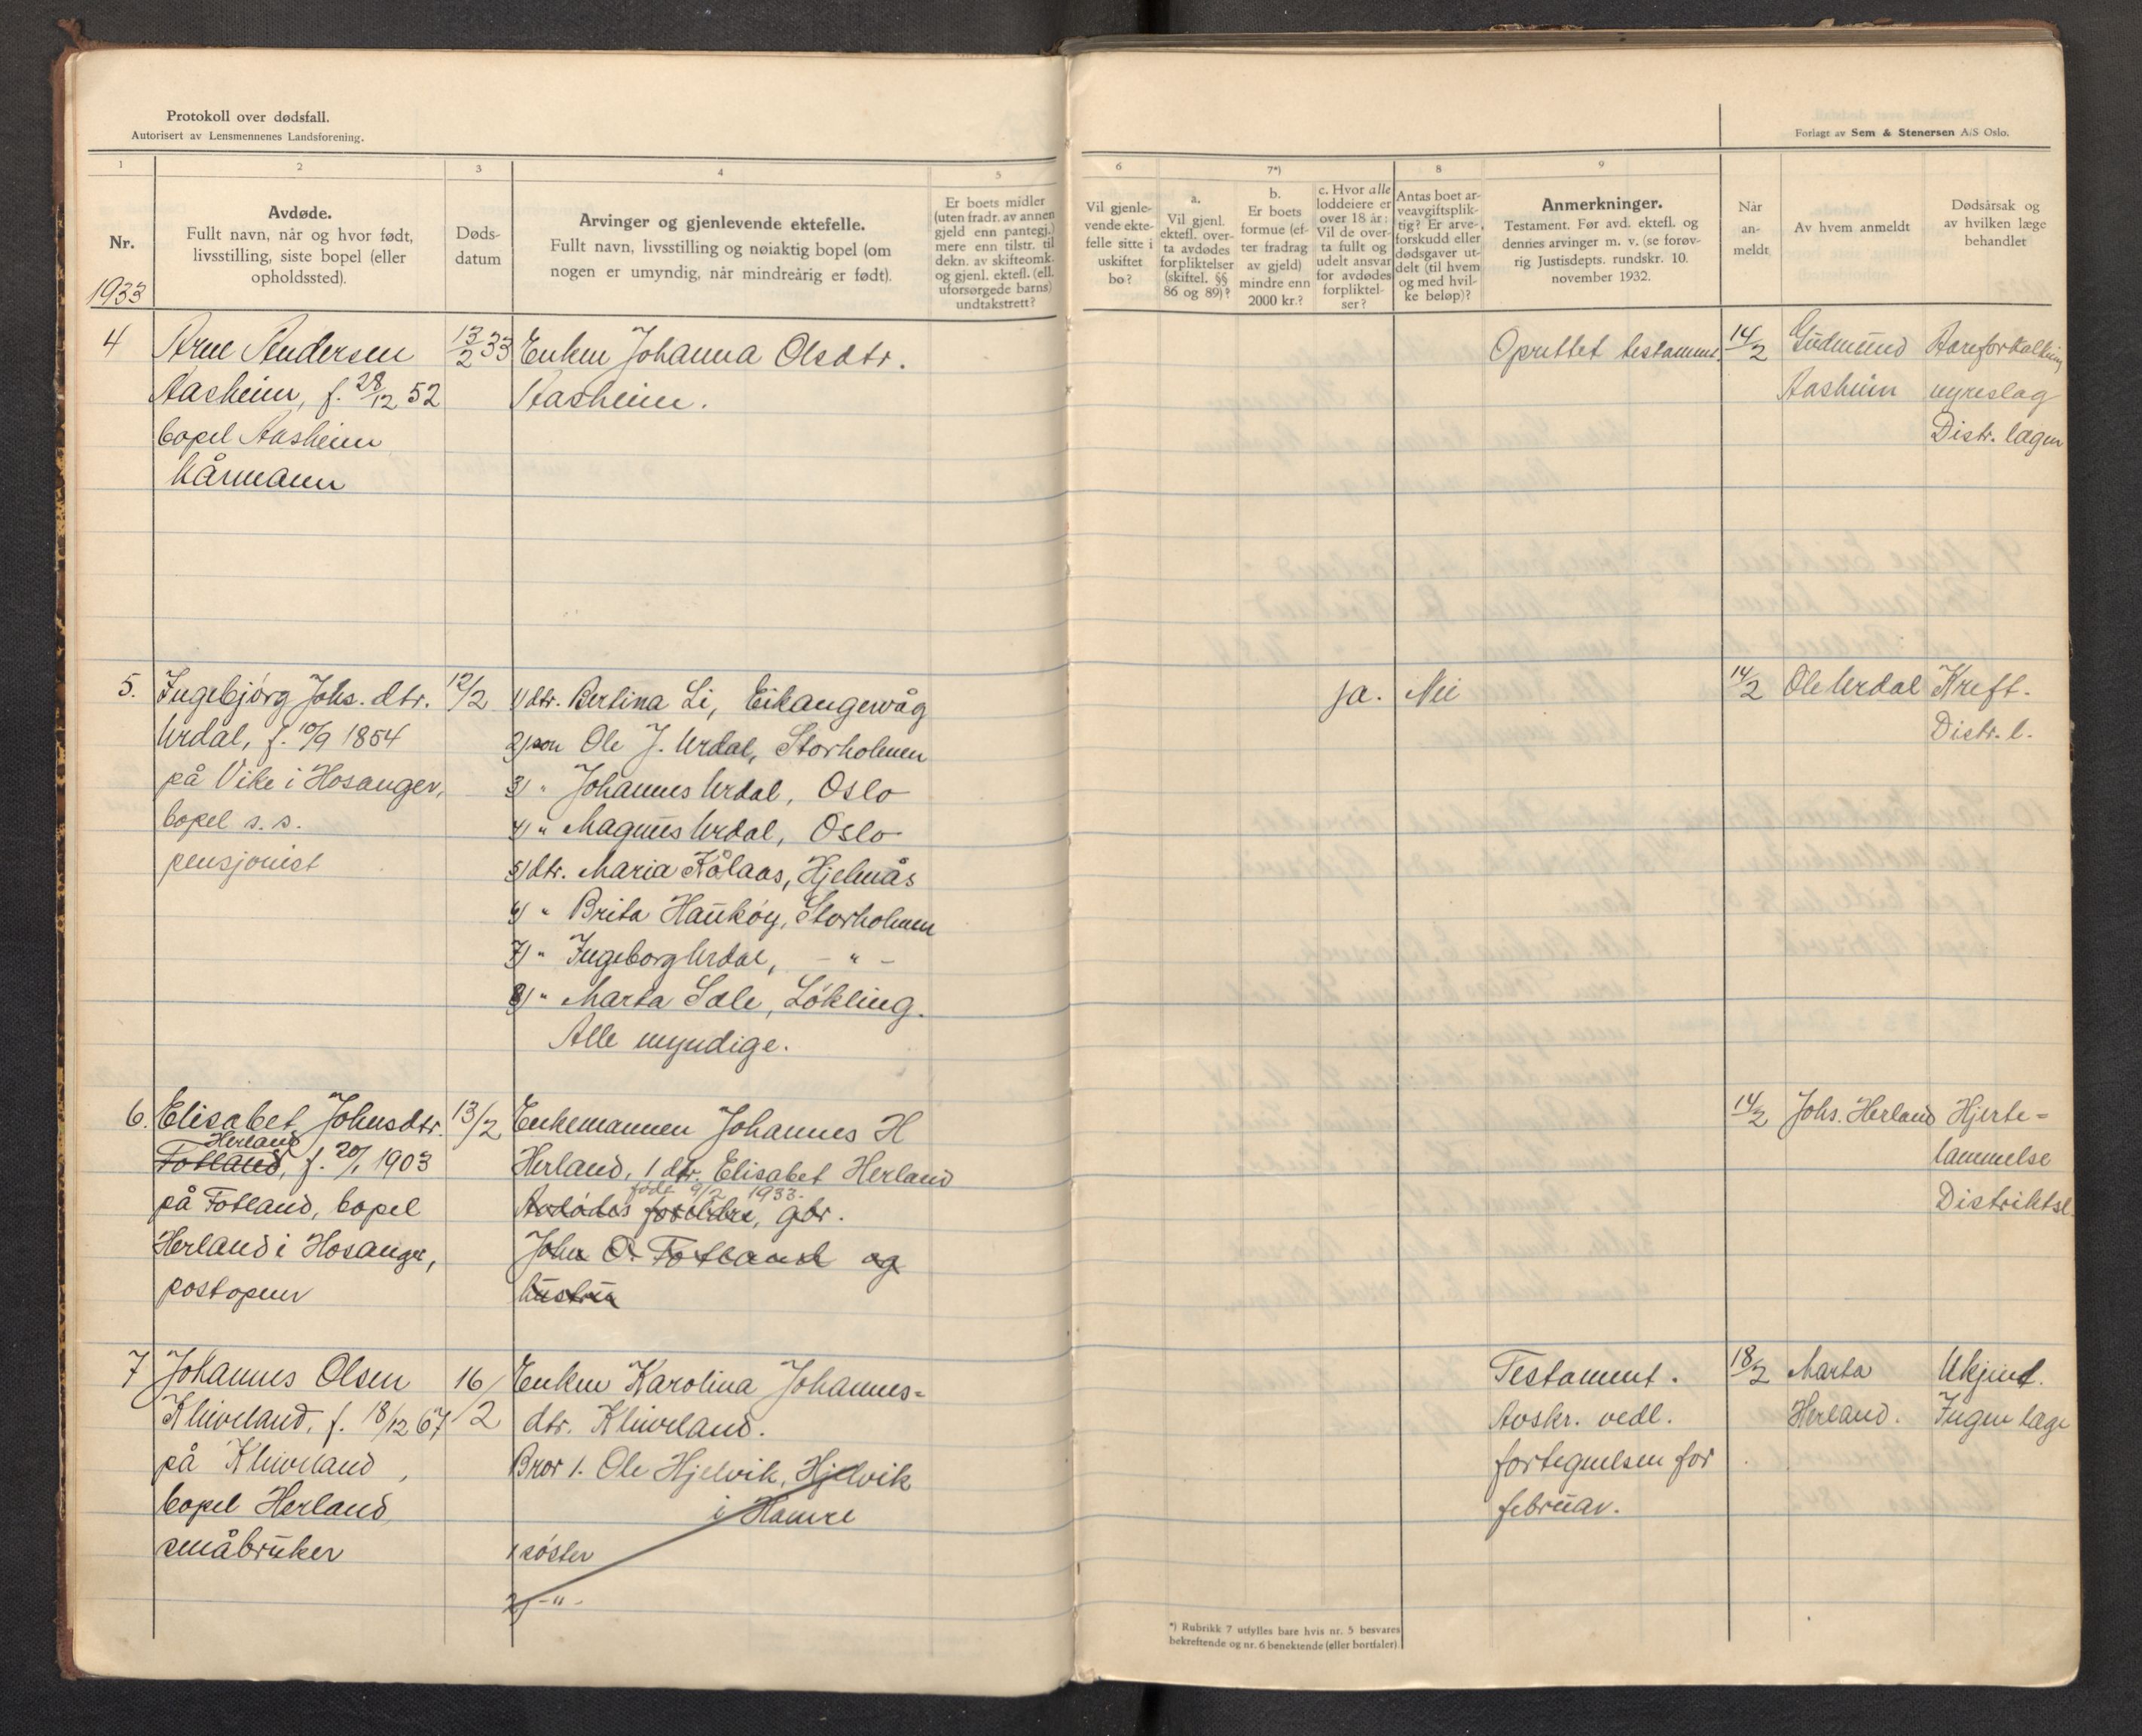 Protokoll over dødsfall.
Autorisert av Lensmennenes Landsforening.
Forlagt av Sem & Stenersen A/S Oslo.
1
2
3
4
5
6
7*)
8
9
Nr.
1933
Avdøde.
Fullt navn, når og hvor født,
livsstilling, siste bopel (eller
opholdssted).
Døds-
datum
Arvinger og gjenlevende ektefelle.
Fullt navn, livsstilling og nøiaktig bopel (om
nogen er umyndig, når mindreårig er født).
Er boets midler
(uten fradr. av annen
gjeld enn pantegj.)
mere enn tilstr. til
dekn. av skifteomk.
og gjenl. ektefl. (ell.
uforsørgede barns)
undtakstrett?
Vil gjenle-
vende ekte-
felle sitte i
uskiftet
bo?
a.
Vil gjenl.
ektefl. over-
ta avdødes
forpliktelser
(skiftel. §§
86 og 89)?
b.
Er boets
formue (ef-
ter fradrag
av gjeld)
mindre enn
2000 kr.?
c. Hvor alle
loddeiere er
over 18 år:
Vil de over-
ta fullt og
udelt ansvar
for avdødes
forpliktel-
ser?
Antas boet ar-
veavgiftsplik-
tig? Er arve-
forskudd eller
dødsgaver ut-
delt (til hvem
og med hvil-
ke beløp)?
Anmerkninger.
Testament. Før avd. ektefl. og
dennes arvinger m. v. (se forøv-
rig Justisdepts. rundskr. 10.
november 1932.
Når
an-
meldt
Av hvem anmeldt
Dødsårsak og
av hvilken læge
behandlet
4
Arne Andersen
Aasheim, f. 28/12 52
bopel Aasheim
kårmann
13/2 33
Enken Johanna Olsdtr.
Aasheim.
Oprettet testament.
14/2
Gudmund
Aasheim
Aareforkalkning
nyreslag
Distr. lægen
5.
Ingebjørg Johs. dtr.
Urdal, f. 10/9 1854
på Vike i Hosanger,
bopel s. s.
pensjonist
12/2
1) dtr. Bertina Li, Eikangervåg
2) son Ole J. Urdal, Storholmen
3) " Johannes Urdal, Oslo
4) " Magnus Urdal, Oslo
5) dtr. Maria Kålaas, Hjelmås
6) " Brita Haukøy, Storholmen
7) " Ingeborg Urdal, - " -
8) " Marta Sæle, Løkling.
Alle myndige.
ja.
Nei
14/2
Ole Urdal
Kreft.
Distr. l.
6.
Elisabet Johnsdtr.
Herland
Fotland, f. 20/1 1903
på Fotland, bopel
Herland i Hosanger,
postopner
13/2
Enkemannen Johannes H
Herland, 1 dtr. Elisabet Herland
født 9/2 1933.
Avdødes foreldre, gbr.
John O. Fotland og
hustru
14/2
Johs. Herland
Hjerte-
lammelse
Distriktsl.
7
Johannes Olsen
Kleiveland, f. 18/12 67
på Kleiveland,
bopel Herland
småbruker
16/2
Enken Karolina Johannes-
dtr. Kleiveland.
Bror 1. Ole Hjelvik, Hjelvik
i Hamre
1 søster
2) - " -
Testament.
Avskr. vedl.
fortegnelsen for
februar.
18/2
Marta
Herland.
Ukjent.
Ingen læge
*) Rubrikk 7 utfylles bare hvis nr. 5 besvares
bekreftende og nr. 6 benektende (eller bortfaler).